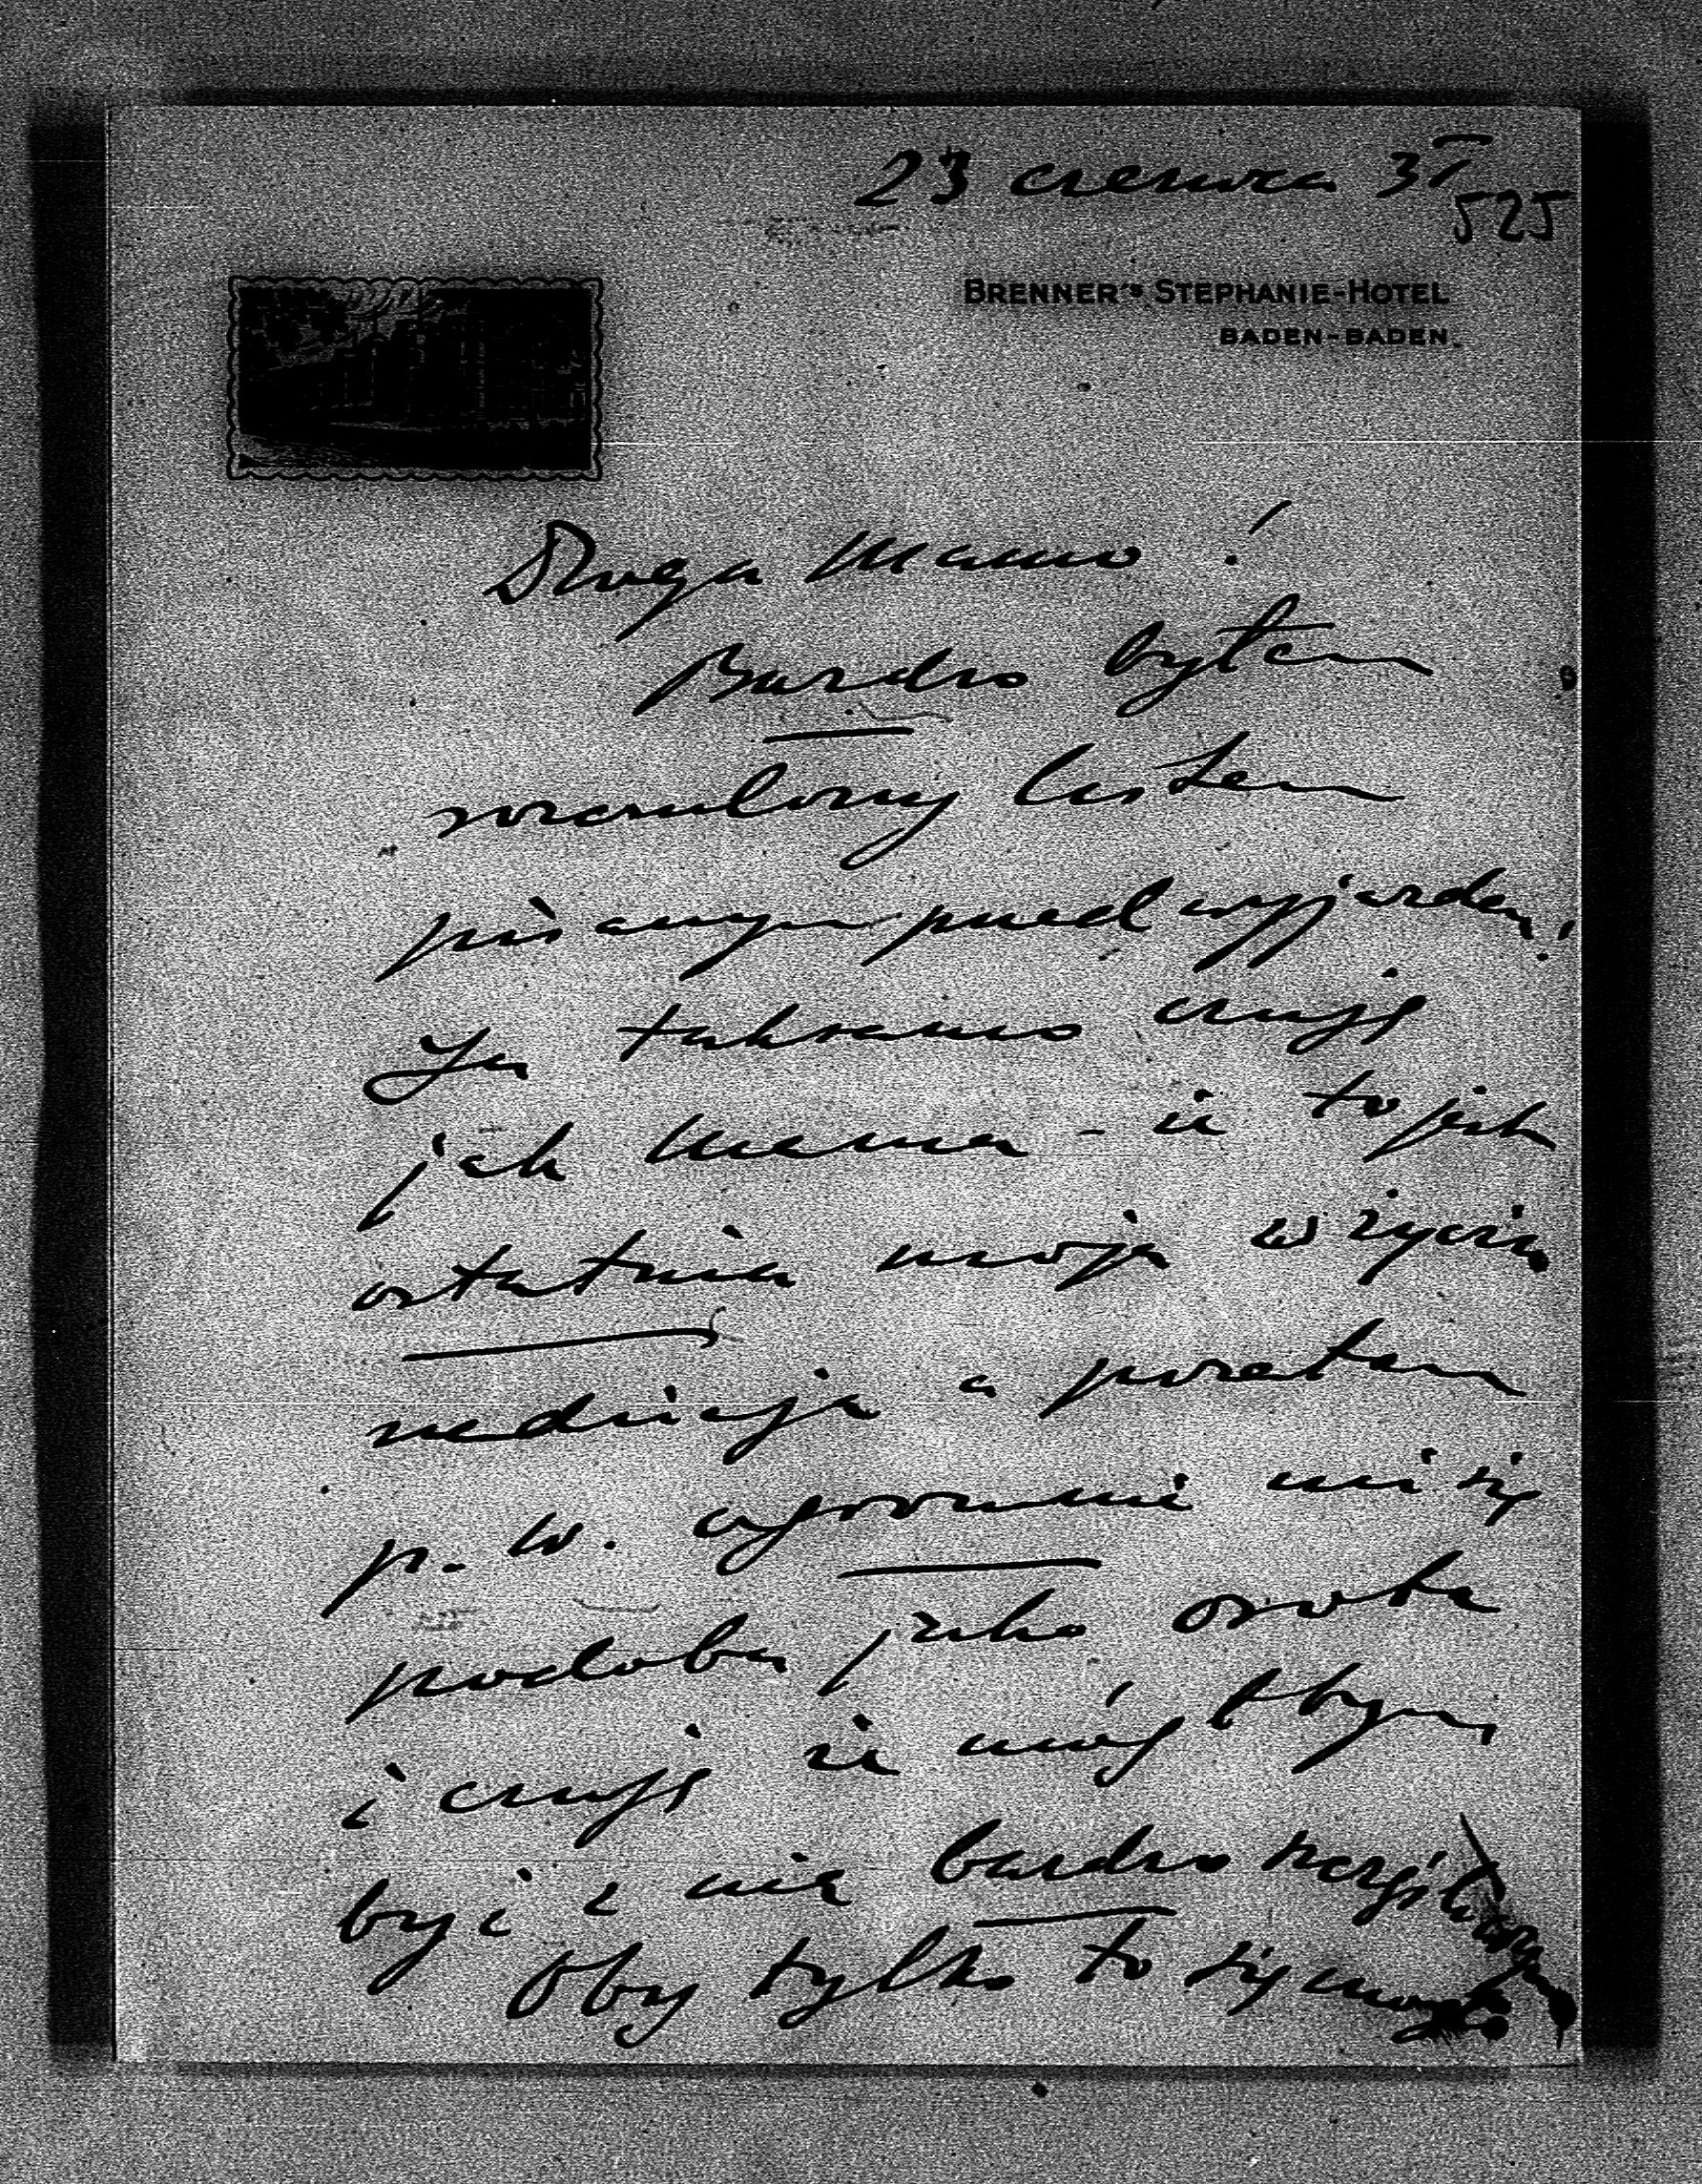 23 czerwca 35
525
BRENNER'S STEPHANIE-HOTEL
BADEN-BADEN.
Droga Mamo!
Bardzo byłem
rozczulony listem
pisanym przed wyjazdem!
Ja tak samo czuję
jak Mama - że to jest
ostatnia moja w życiu
nadzieja a pozatem
p. W. ogromnie mi się
podoba jako osoba
i czuję że mógłbym
być i nie bardzo
Oby tylko to się mogło